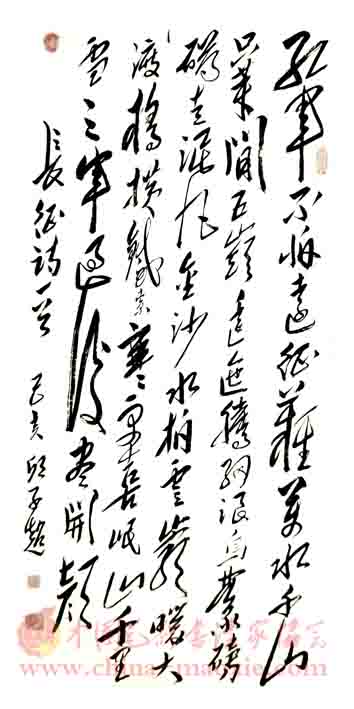 紅軍不怕遠征難萬水千山
只等閒五嶺逶迤騰細浪烏蒙磅
礴走泥丸金沙水拍雲崖暖大
渡橋橫鐵索寒更喜岷山千里
雪三軍過後尽開顏
長征詩一首 己亥